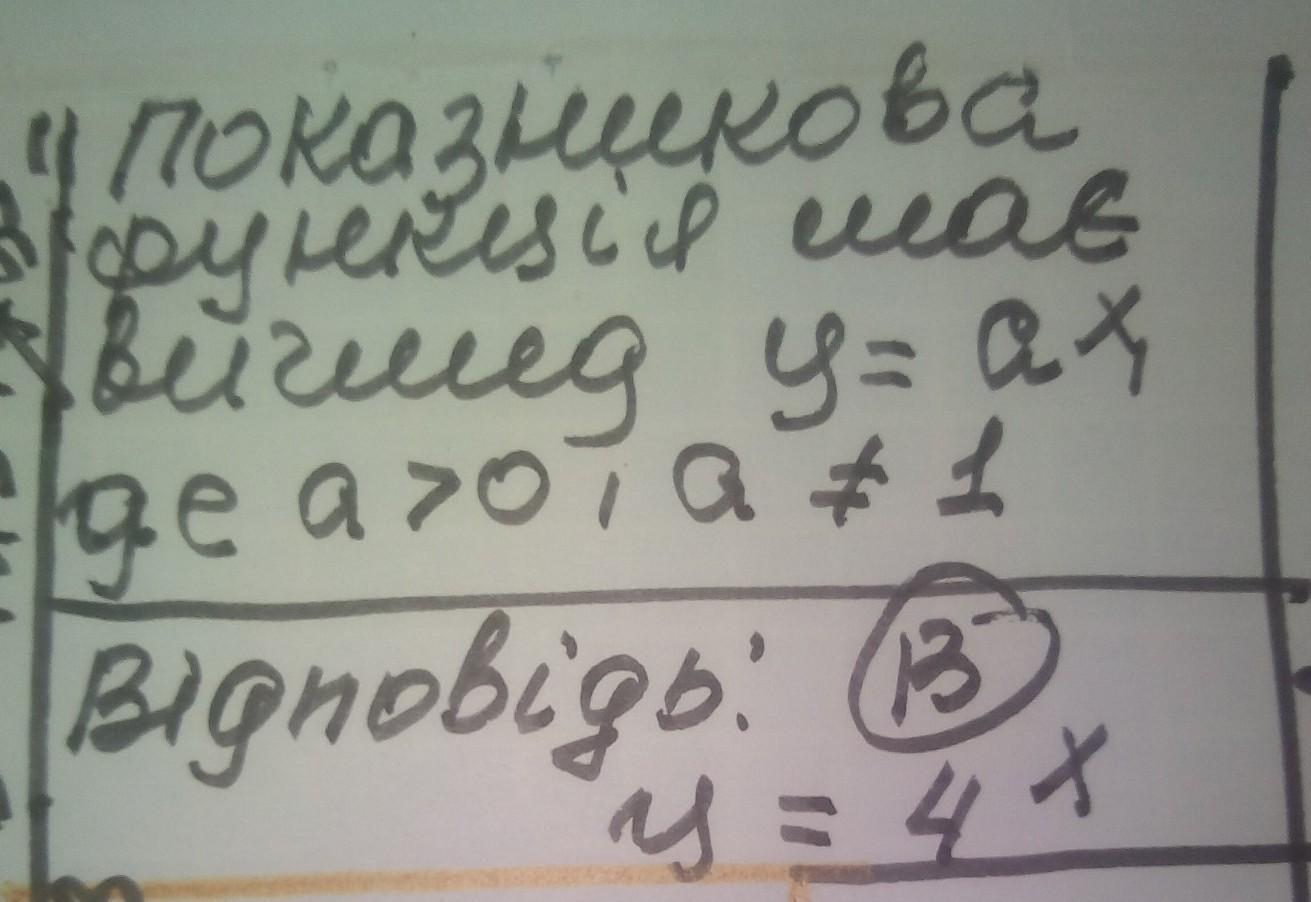 показникова
функція має
вигляд y = aˣ,
де a > 0, a ≠ 1
Відповідь: В
y = 4ˣ